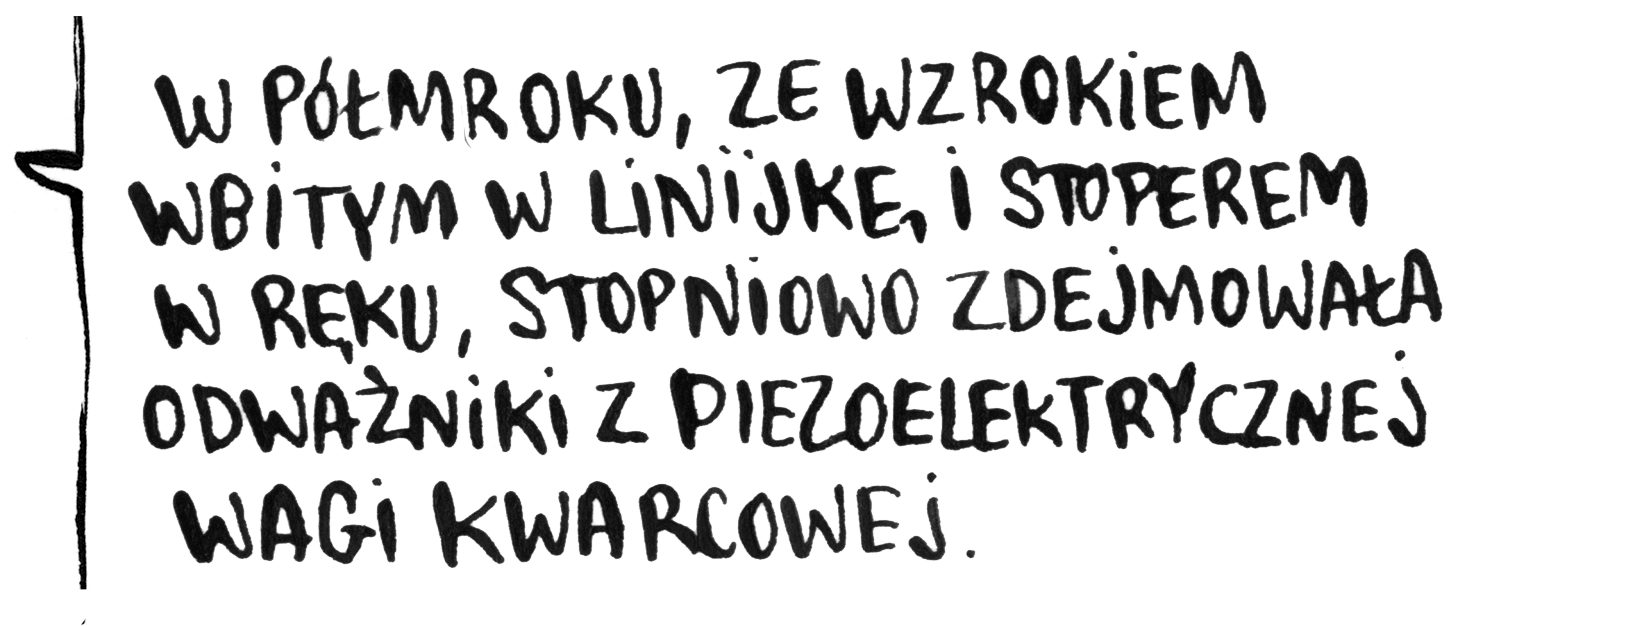 W PÓŁMROKU, ZE WZROKIEM
WBITYM W LINIJKĘ, I STOPEREM
W RĘKU, STOPNIOWO ZDEJMOWAŁA
ODWAŻNIKI Z PIEZOELEKTRYCZNEJ
WAGI KWARCOWEJ.